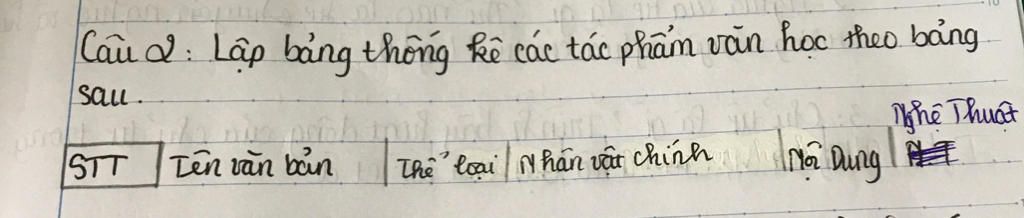 Câu 2: Lập bảng thống kê các tác phẩm văn học theo bảng
sau.
Nghệ Thuật
STT Tên văn bản Thể loại Nhân vật chính Nội Dung